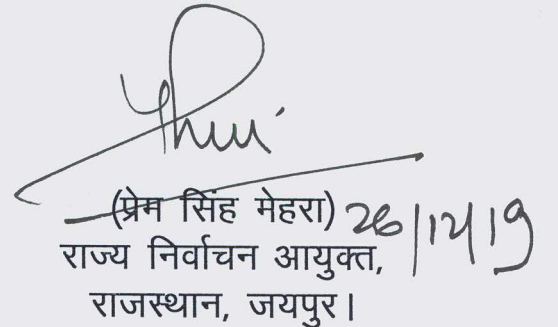 (प्रेम सिंह मेहरा) 26/12/19
राज्य निर्वाचन आयुक्त,
राजस्थान, जयपुर।